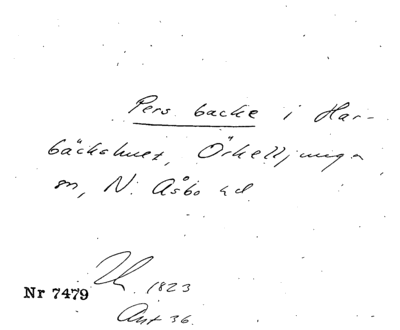 Pers backe i Har-
bäckshult, Örkelljunga
sn, N. Åsbo hd.
1823
Nr 7479
Ant 36.